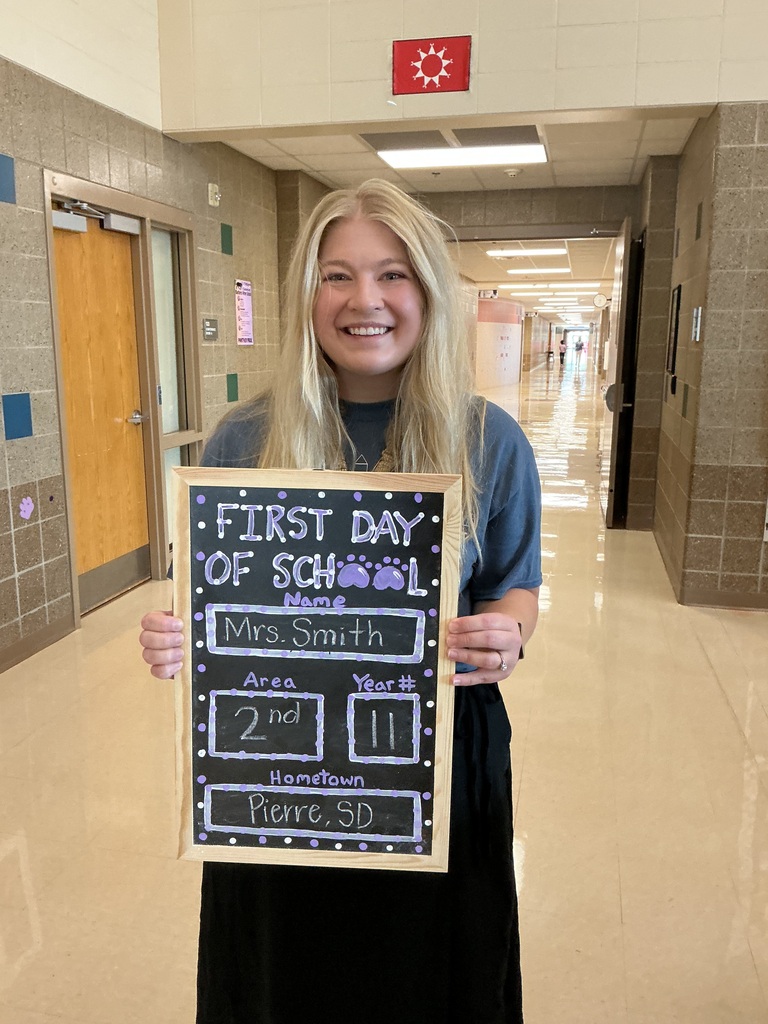 FIRST DAY
OF SCHOOL
Name
Mrs. Smith
Area
Year #
2nd
11
Hometown
Pierre, SD